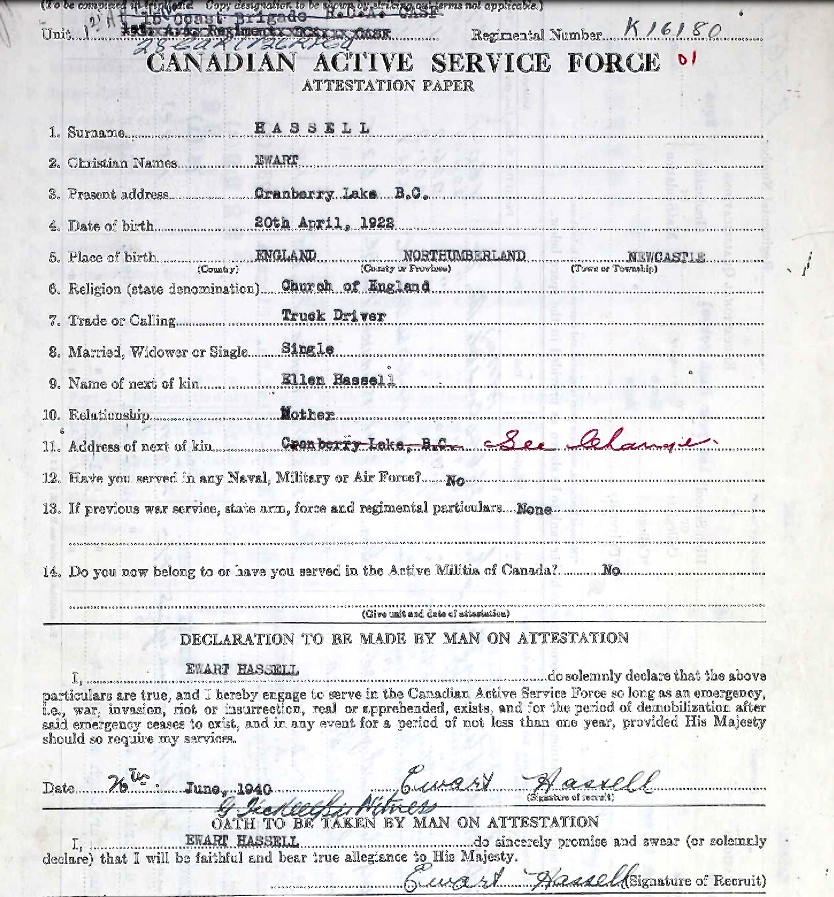 (To be completed in triplicate. Copy designation to be shown by striking out terms not applicable.)
15 Coast Brigade R.C.A. CASF
Unit Regimental Number K16180
CANADIAN ACTIVE SERVICE FORCE 01
ATTESTATION PAPER
1. Surname HASSELL
2. Christian Names EWART
3. Present address Cranberry Lake B.C.
4. Date of birth 20th April, 1922
5. Place of birth ENGLAND NORTHUMBERLAND NEWCASTLE
(County) (County or Province) (Town or Township)
6. Religion (state denomination) Church of England
7. Trade or Calling Truck Driver
8. Married, Widower or Single Single
9. Name of next of kin Ellen Hassell
10. Relationship Mother
11. Address of next of kin Cranberry Lake, B.C. See Change.
12. Have you served in any Naval, Military or Air Force? No
13. If previous war service, state arm, force and regimental particulars None
14. Do you now belong to or have you served in the Active Militia of Canada? No
(Give unit and date of attestation)
DECLARATION TO BE MADE BY MAN ON ATTESTATION
I, EWART HASSELL do solemnly declare that the above
particulars are true, and I hereby engage to serve in the Canadian Active Service Force so long as an emergency,
i.e., war, invasion, riot or insurrection, real or apprehended, exists, and for the period of demobilization after
said emergency ceases to exist, and in any event for a period of not less than one year, provided His Majesty
should so require my services.
Date June, 1940 Ewart Hassell
(Signature of recruit)
Witness
OATH TO BE TAKEN BY MAN ON ATTESTATION
I, EWART HASSELL do sincerely promise and swear (or solemnly
declare) that I will be faithful and bear true allegiance to His Majesty.
Ewart Hassell (Signature of Recruit)